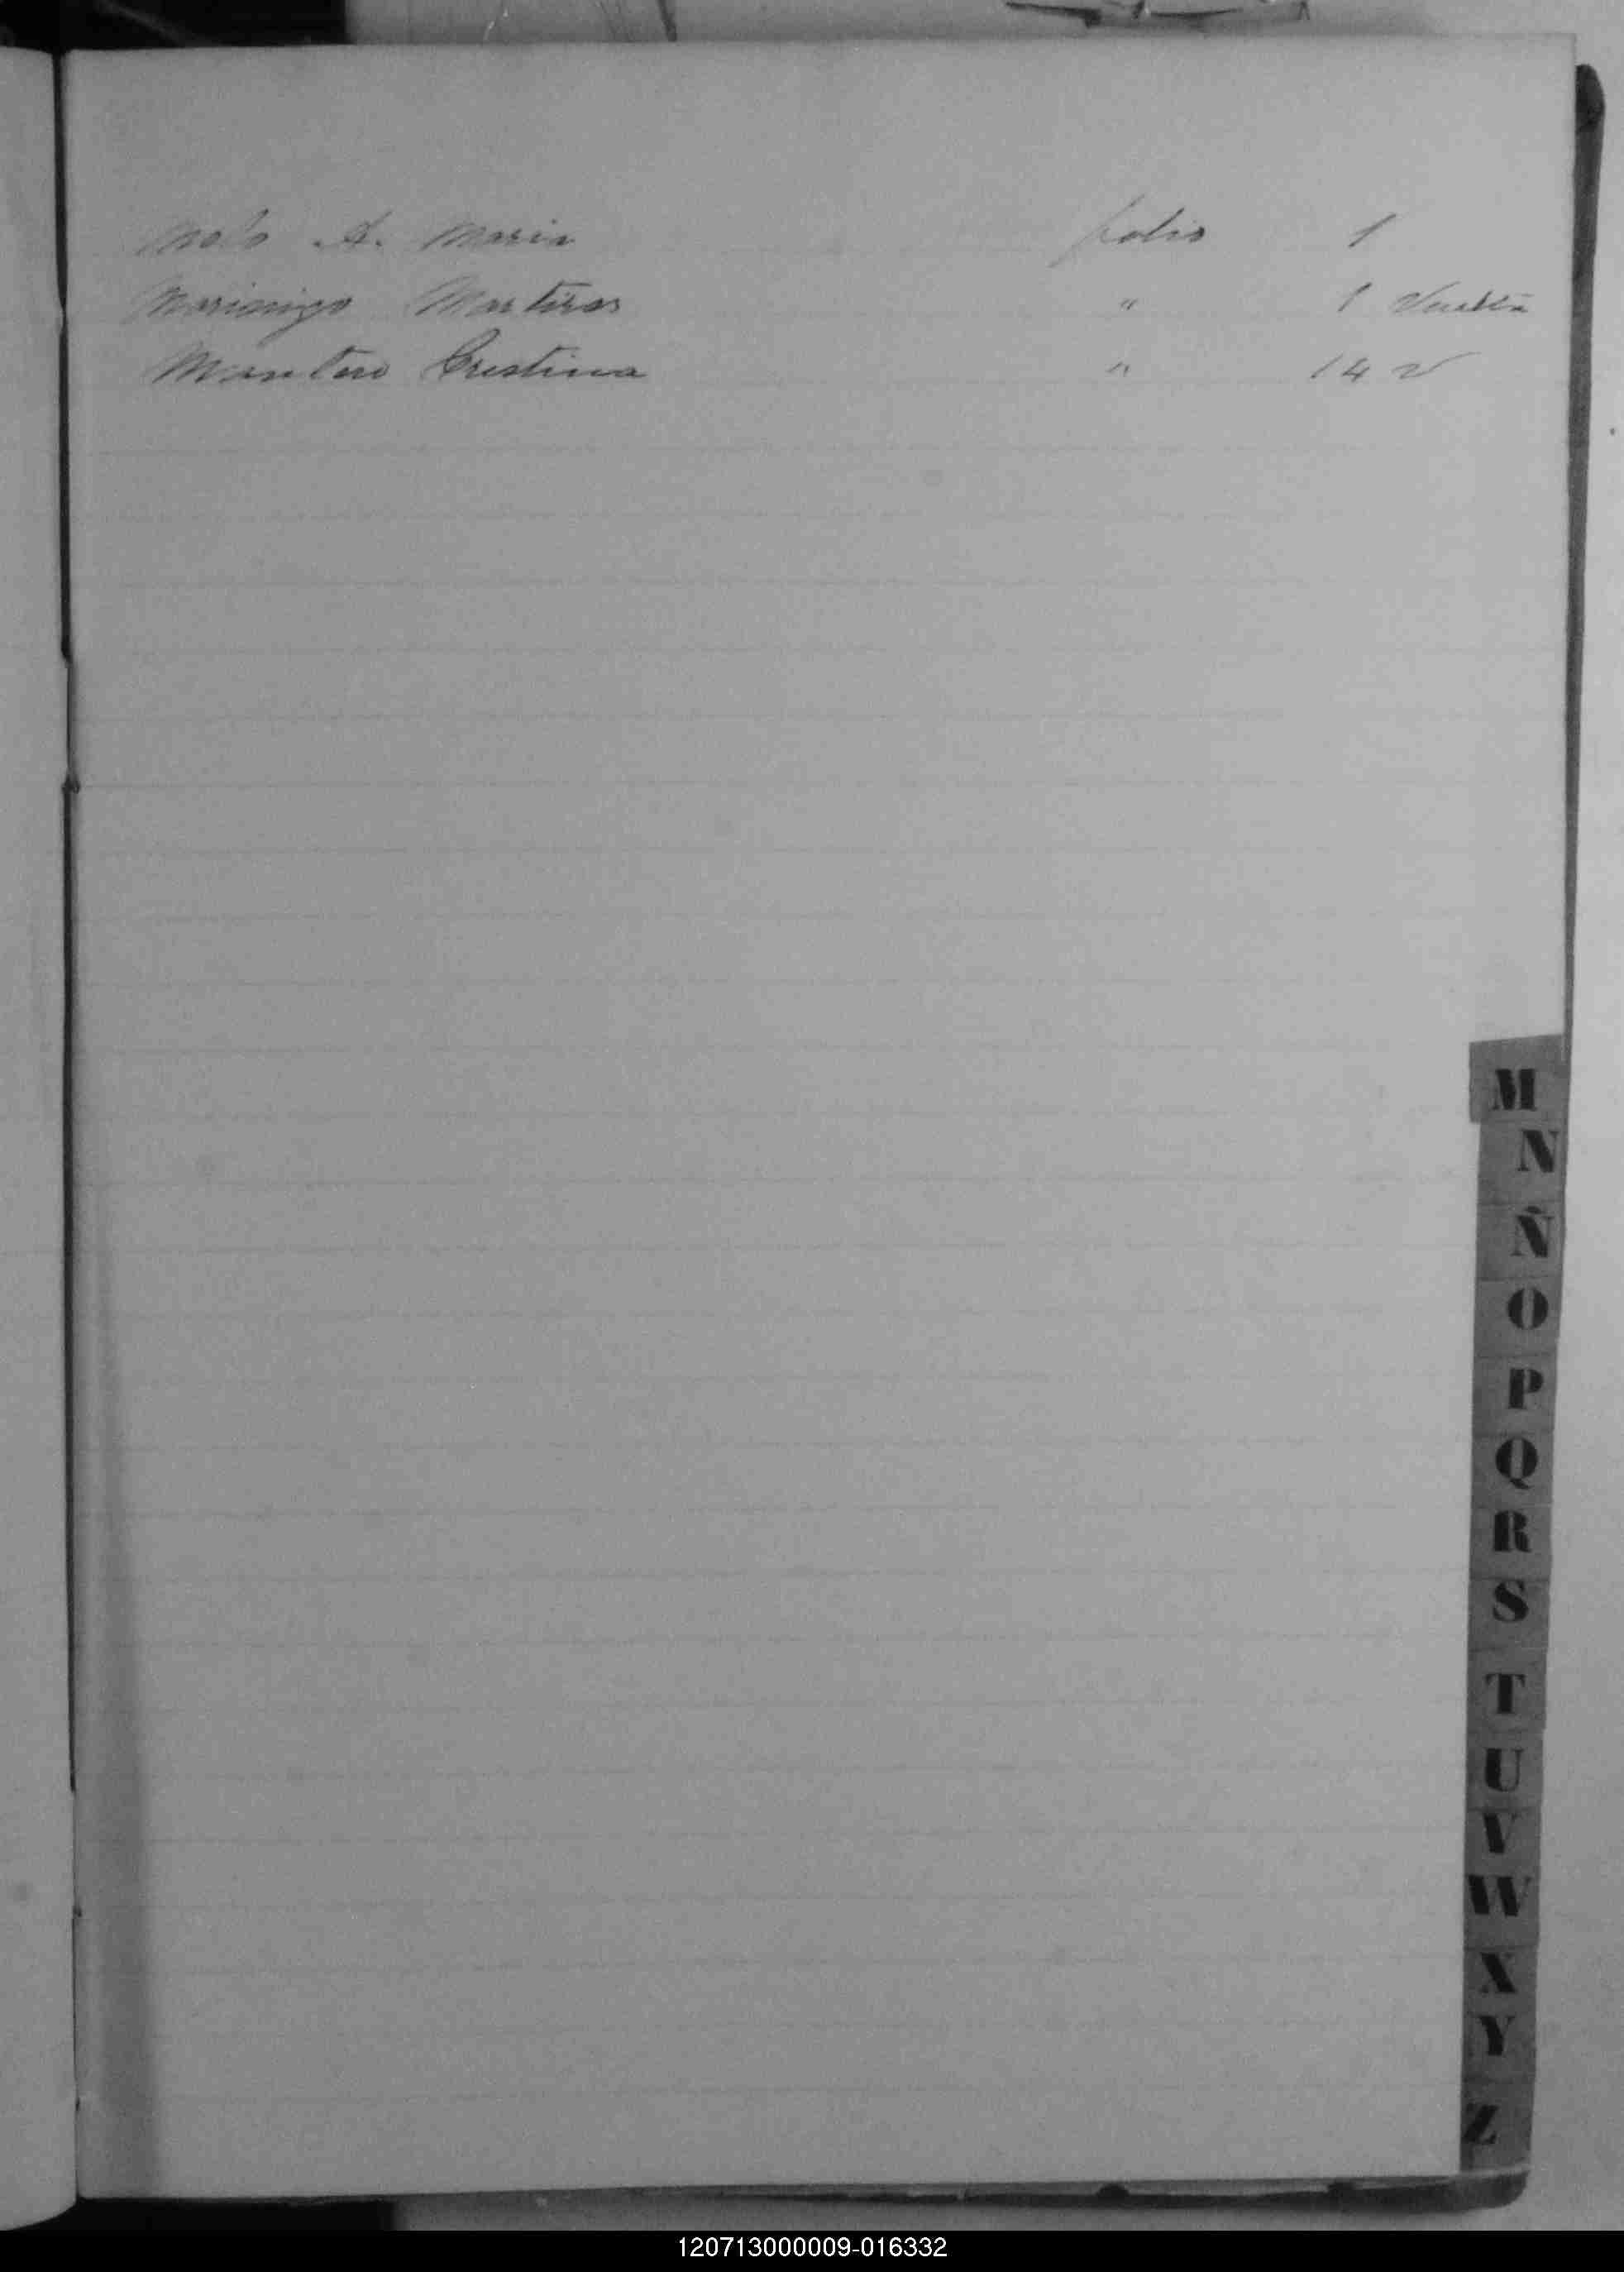 Melo A. Maria folio 1
Maricnigo Martires " 1 Vuelta
Mantero Crestina " 14 v
M
N
Ñ
O
P
Q
R
S
T
U
V
W
X
Y
Z
120713000009-016332